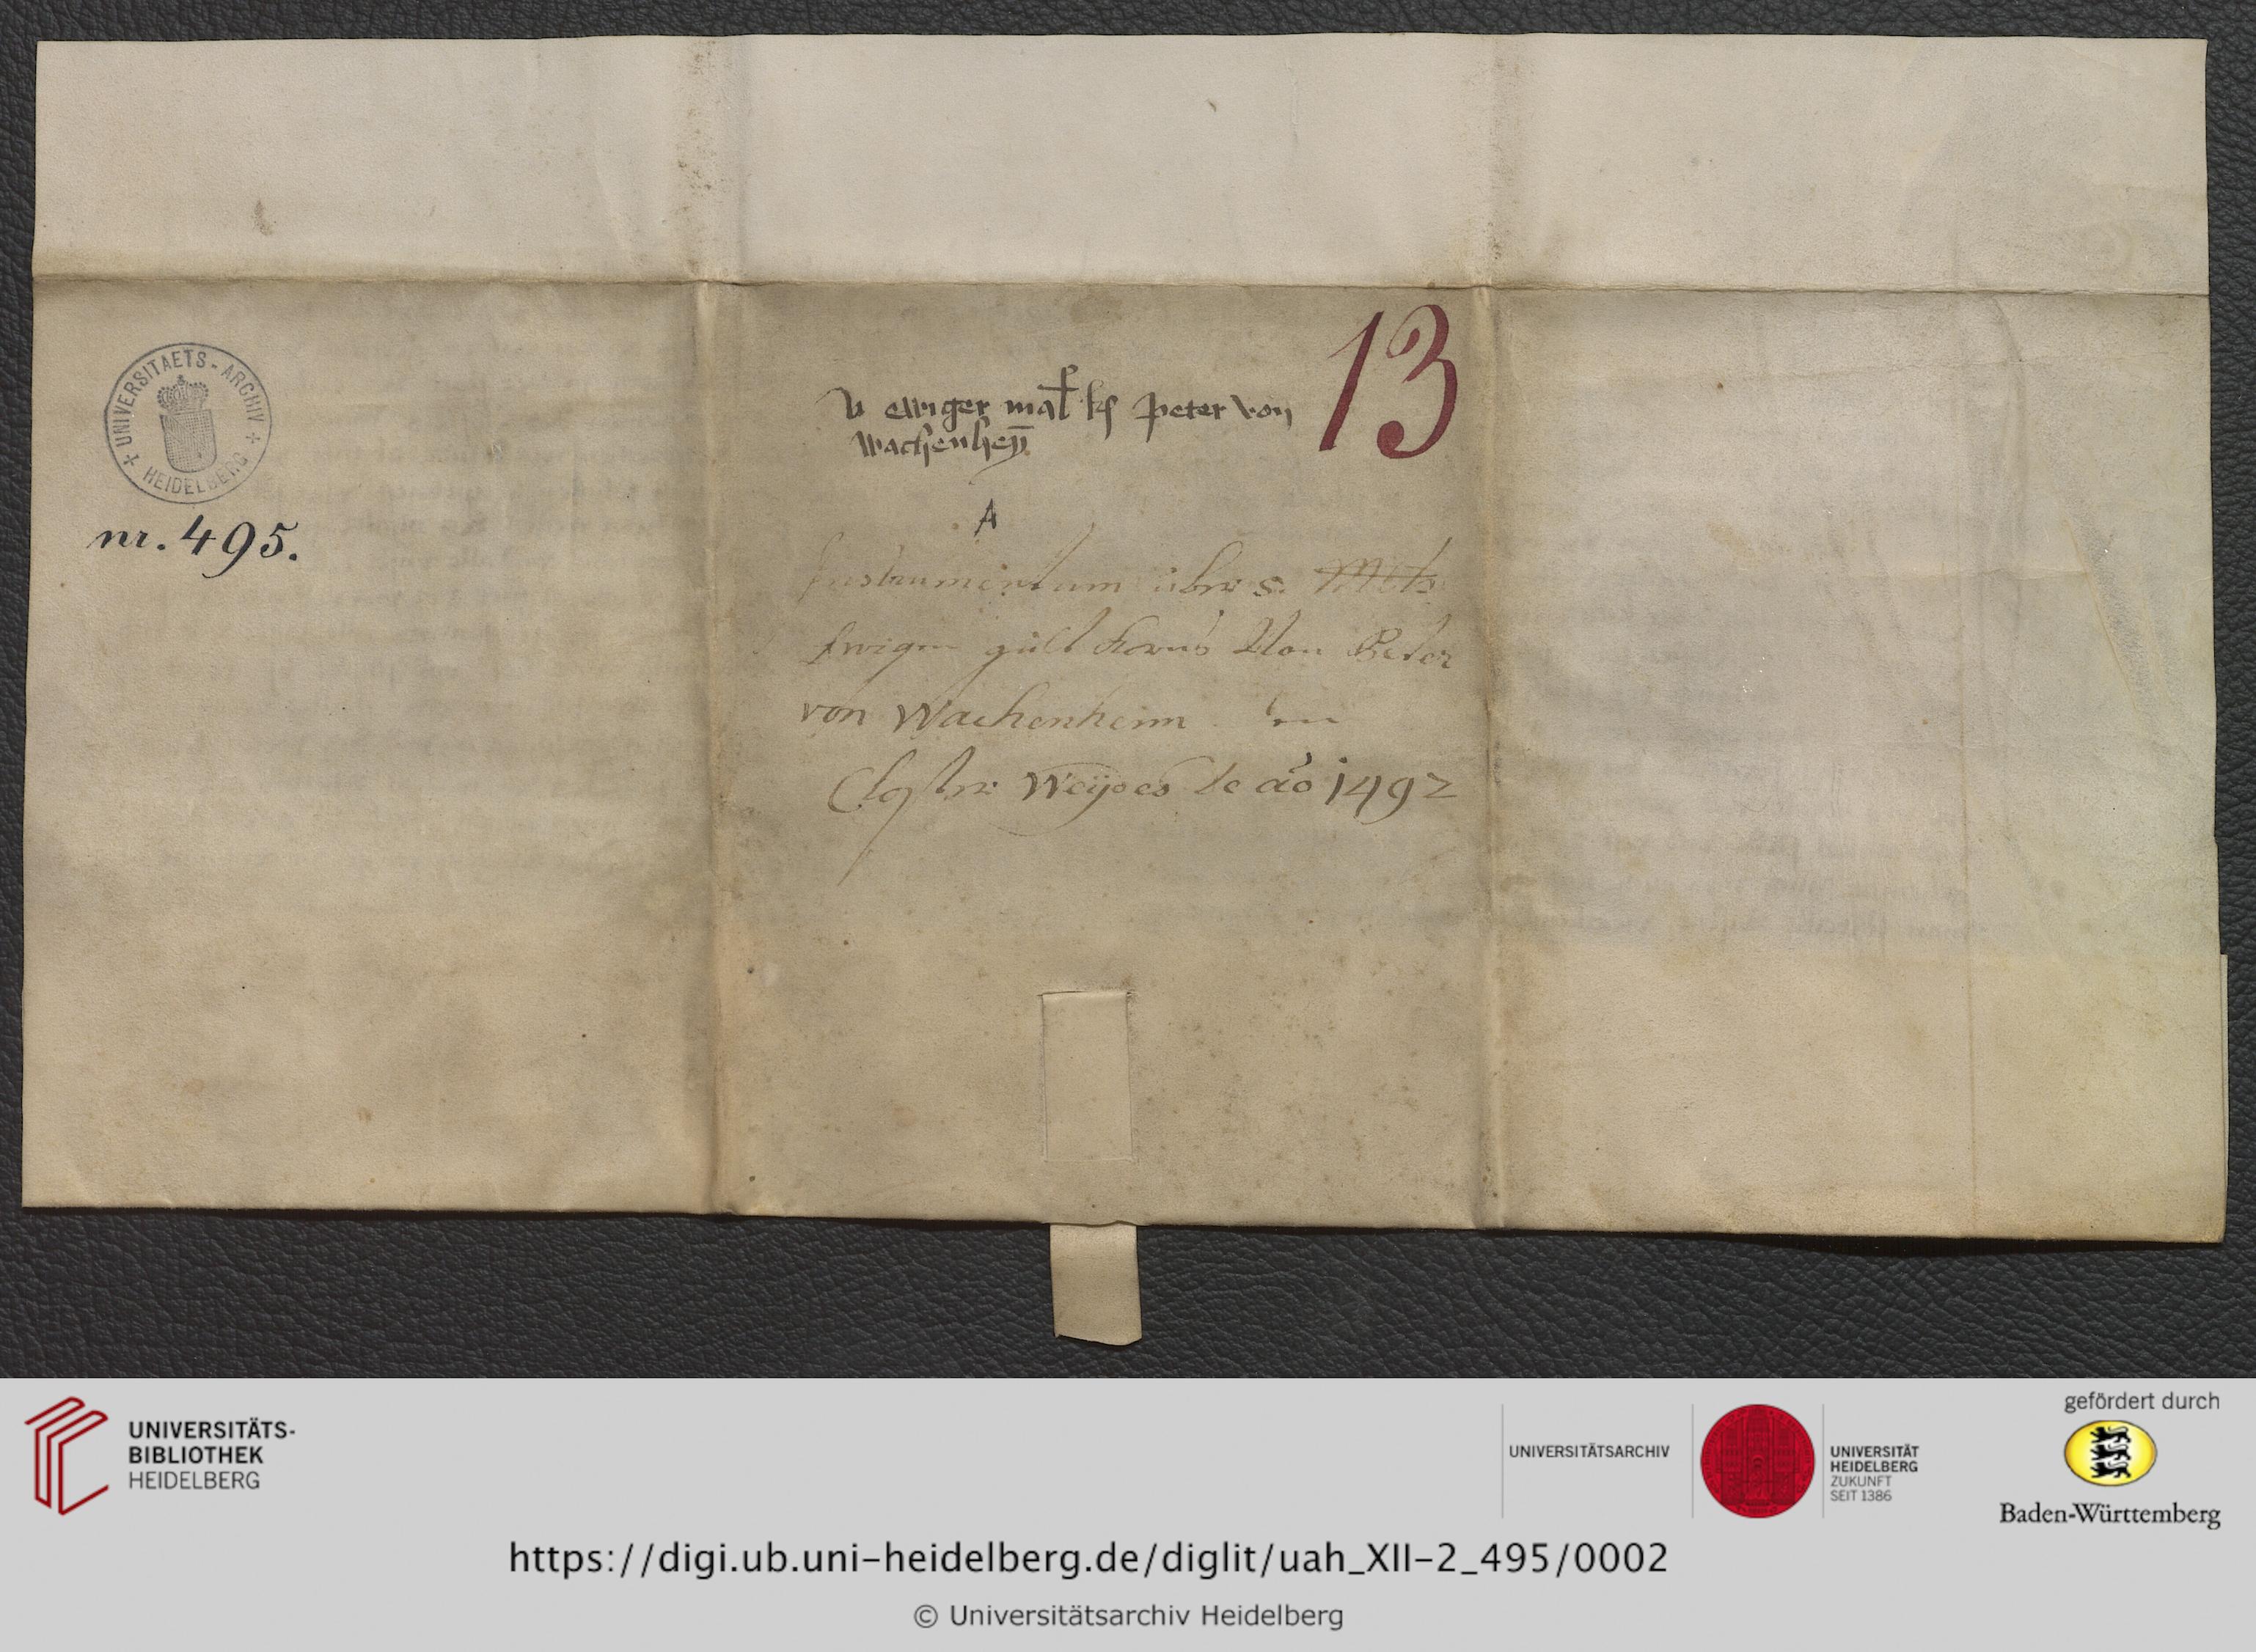 UNIVERSITAETS-ARCHIV
HEIDELBERG
nr. 495.
13
v ewiger mal̄ kß peter von
wachenheȳ
A
Instrumentum über 5. Mltr
Ewigen gült Korns Von Peter
von Wachenheim
Closter Weyßes de aō 1492
UNIVERSITÄTS-
BIBLIOTHEK
HEIDELBERG
UNIVERSITÄTSARCHIV
UNIVERSITÄT
HEIDELBERG
ZUKUNFT
SEIT 1386
gefördert durch
Baden-Württemberg
https://digi.ub.uni-heidelberg.de/diglit/uah_XII-2_495/0002
© Universitätsarchiv Heidelberg